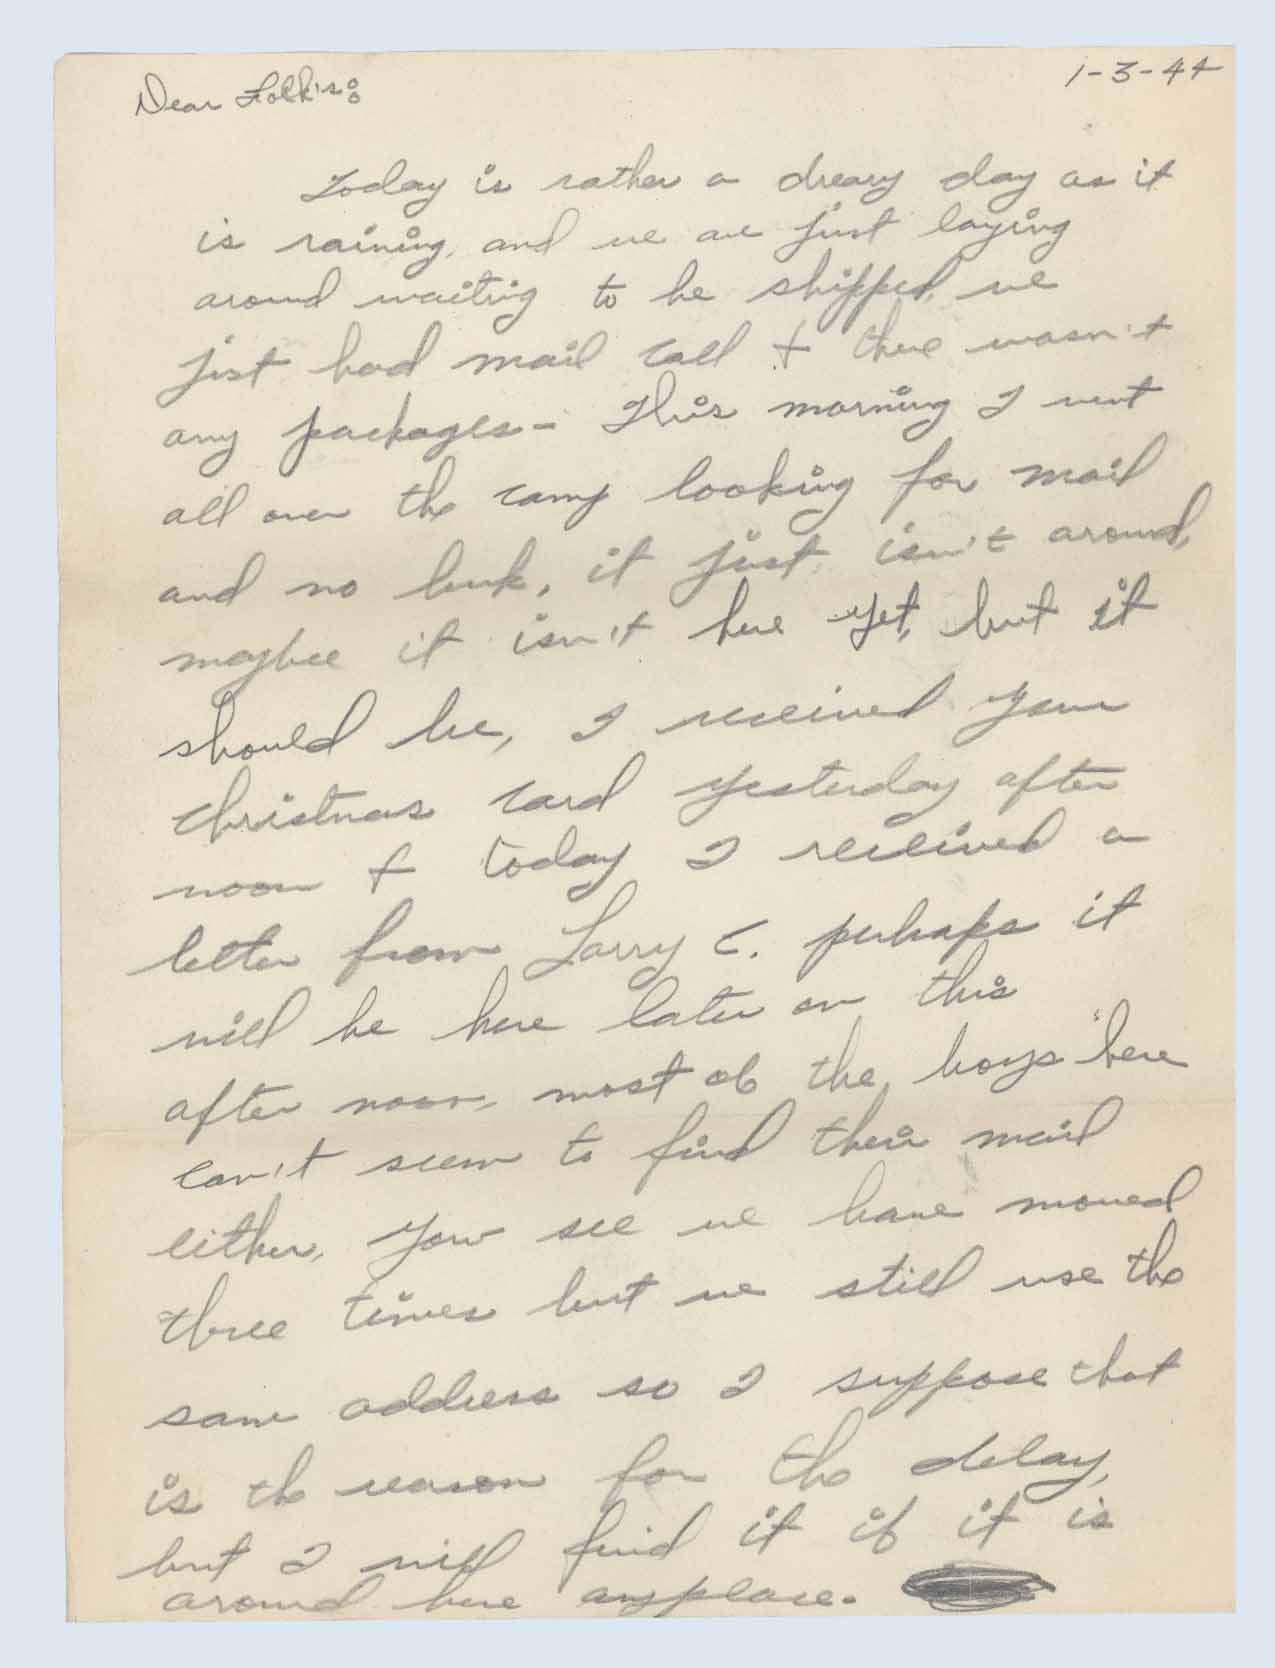 1-3-44
Dear Folk's:
Today is rather a dreary day as it
is raining, and we are just laying
around waiting to be shipped, we
just had mail call + there wasn't
any packages - This morning I went
all over the camp looking for mail
and no luck, it just isn't around,
maybee it isn't here yet, but it
should be, I received your
Christmas card yesterday after
noon + today I received a
letter from Larry C. perhaps it
will be here later on this
after noon, most of the boys here
can't seem to find their mail
either, you see we have moved
three times but we still use the
same address so I suppose that
is the reason for the delay,
but I will find it if it is
around here anyplace.